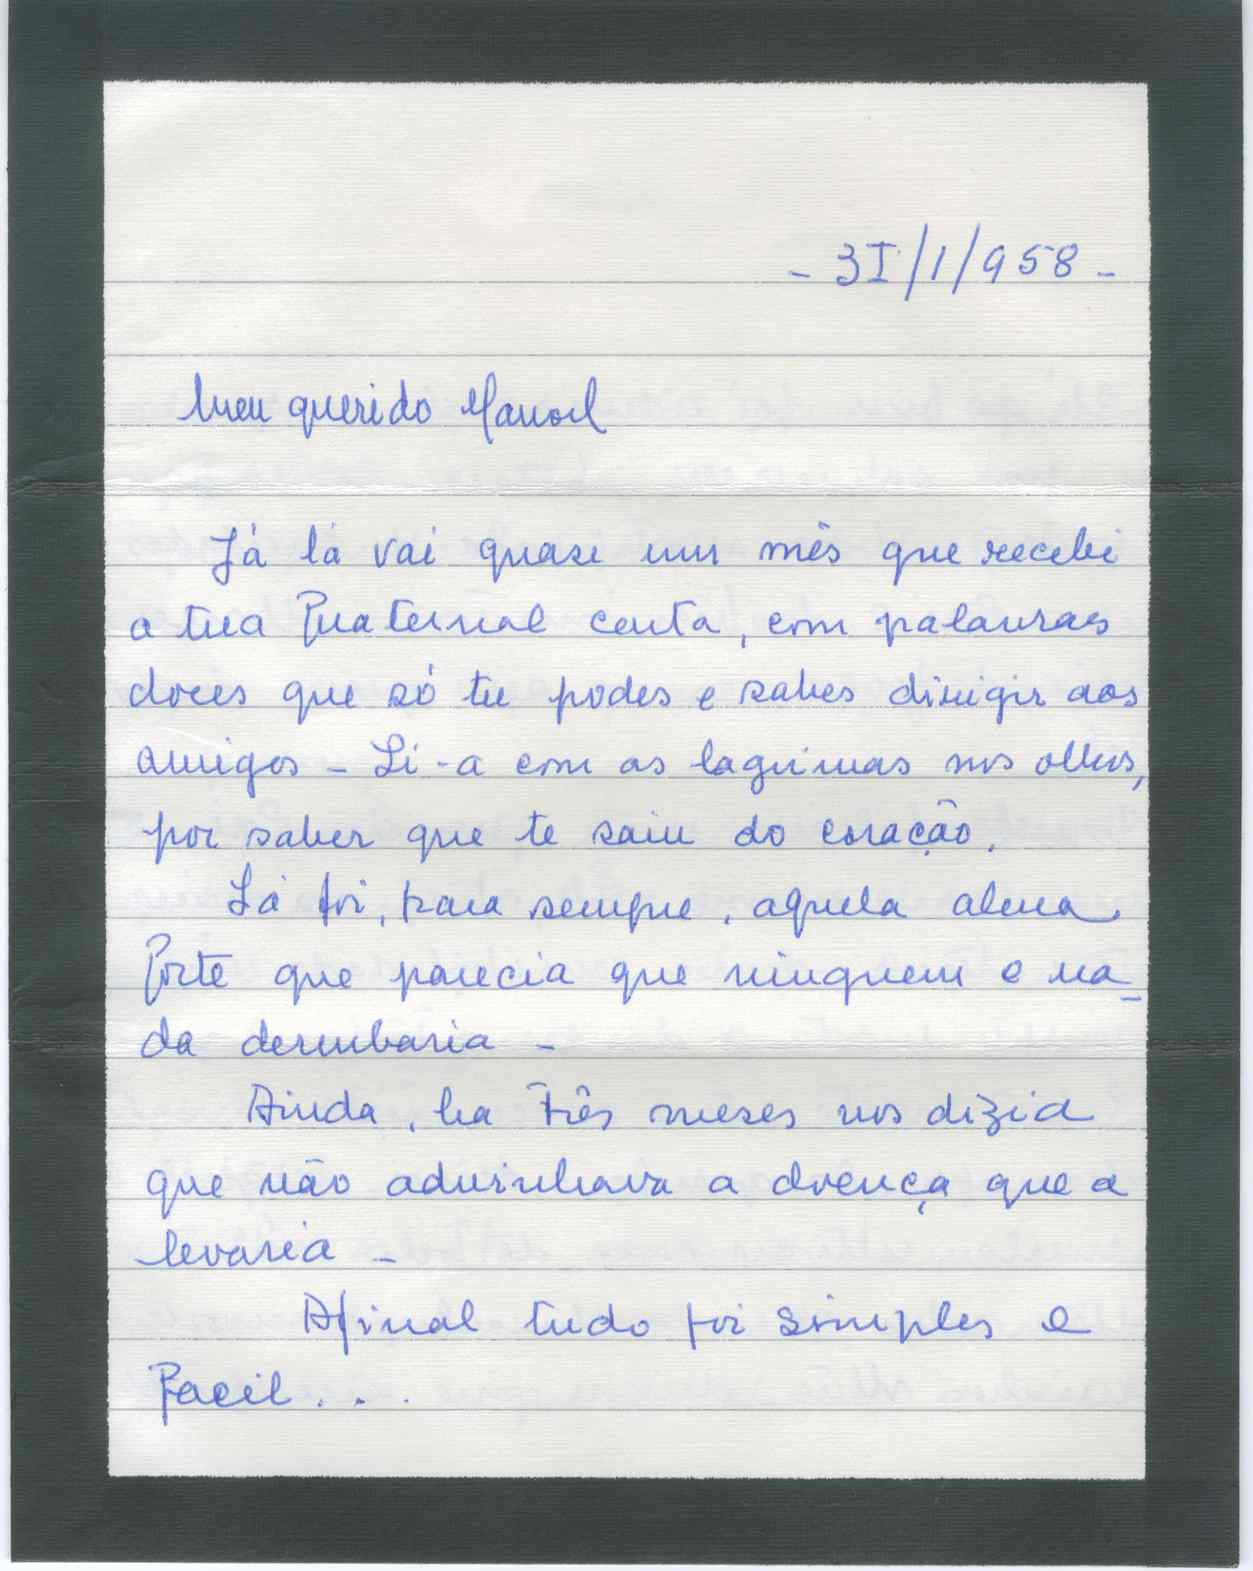 - 3I/1/958 -
Meu querido Manoel
Já lá vai quase um mês que recebi
a tua fraternal carta, com palavras
doces que só tu podes e sabes dirigir aos
amigos - Li-a com as lagrimas nos olhos,
por saber que te saiu do coração.
Lá foi, para sempre, aquela alma
forte que parecia que ninguem e na-
da derrubaria -
Ainda, ha três meses nos dizia
que não adivinhava a doença que a
levaria -
Afinal tudo foi simples e
facil...